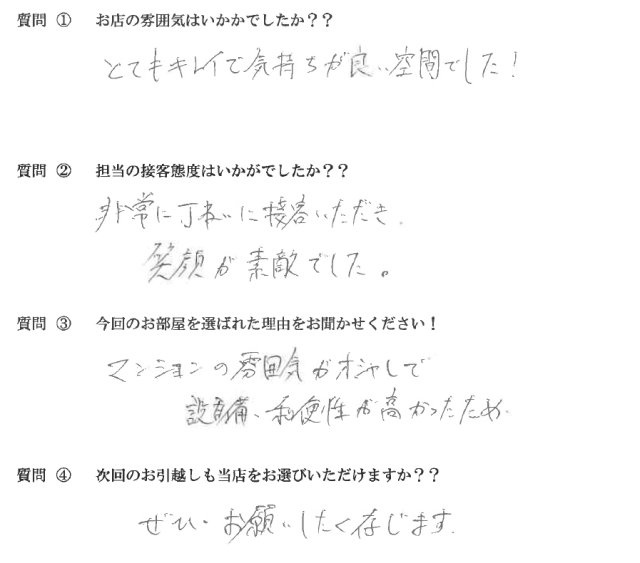 質問 ① お店の雰囲気はいかかでしたか??
とてもキレイで気持ちが良い空間でした!
質問 ② 担当の接客態度はいかがでしたか??
非常に丁ねいに接客いただき、
笑顔が素敵でした。
質問 ③ 今回のお部屋を選ばれた理由をお聞かせください!
マンションの雰囲気がオシャレで
設備、利便性が高かったため、
質問 ④ 次回のお引越しも当店をお選びいただけますか??
ぜひ、お願いしたく存じます。